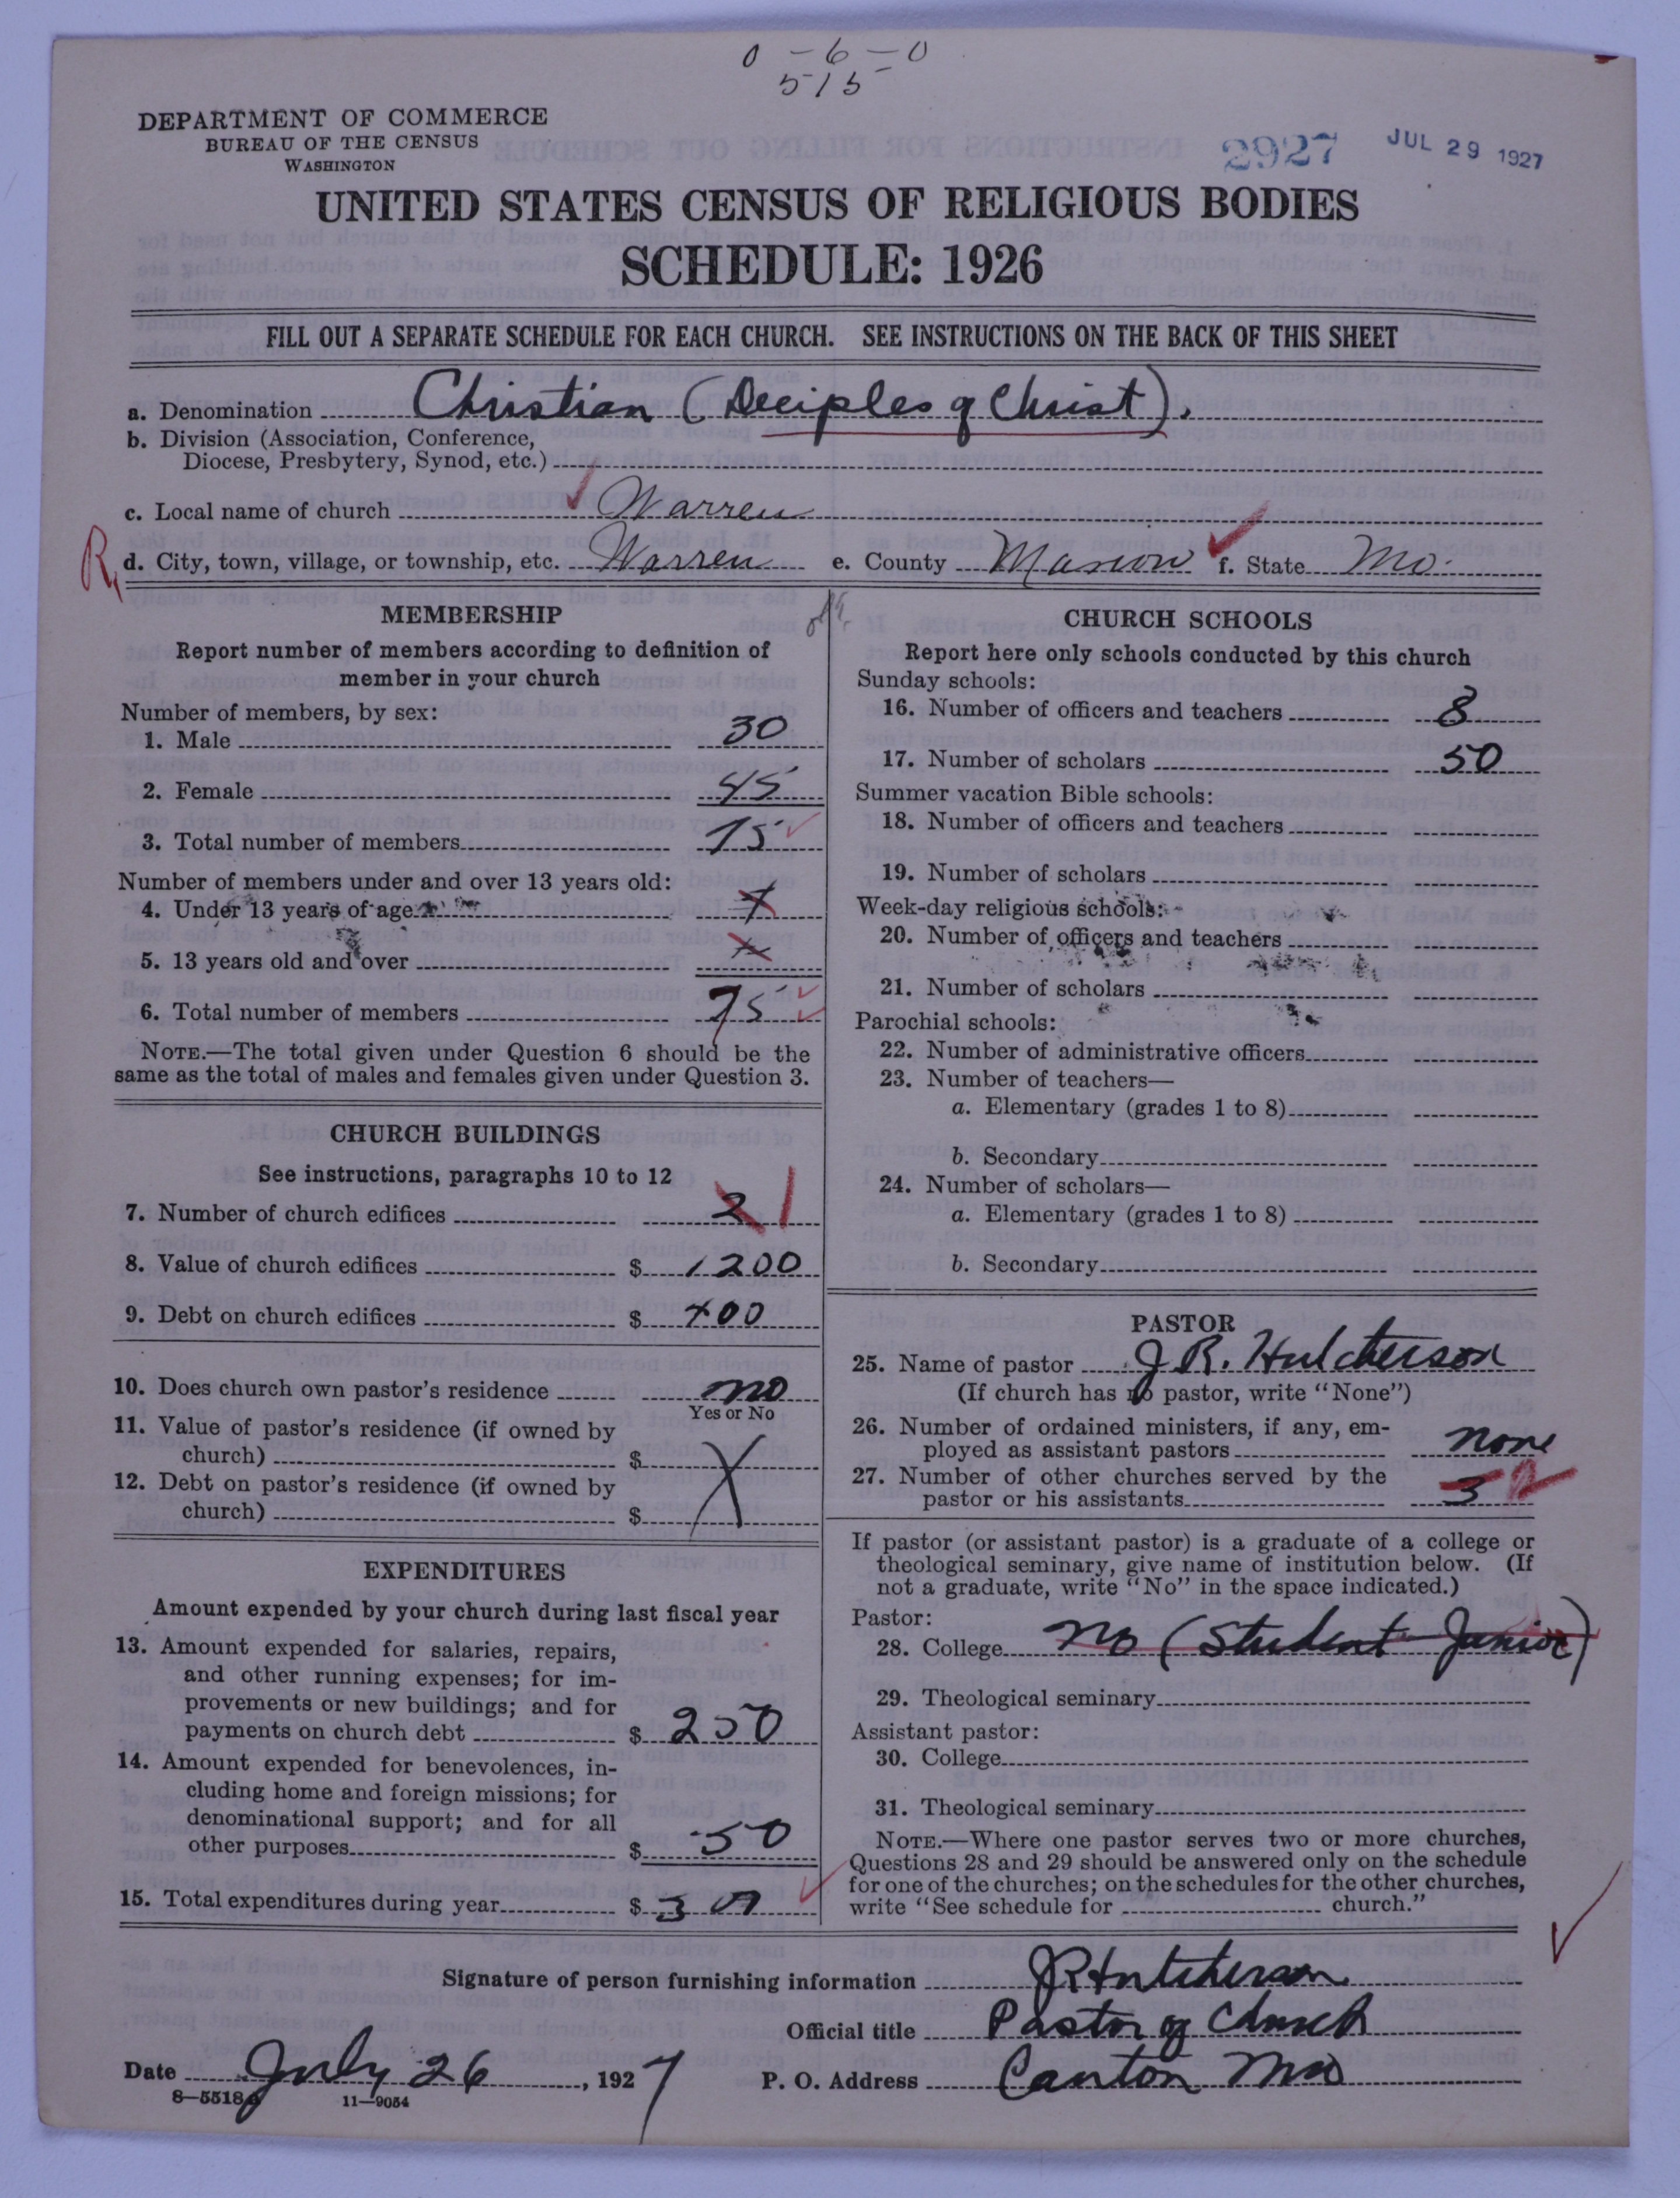 0 - 6 - 0
515
DEPARTMENT OF COMMERCE
BUREAU OF THE CENSUS
WASHINGTON
2927 JUL 29 1927
UNITED STATES CENSUS OF RELIGIOUS BODIES
SCHEDULE: 1926
FILL OUT A SEPARATE SCHEDULE FOR EACH CHURCH. SEE INSTRUCTIONS ON THE BACK OF THIS SHEET
a. Denomination Christian (Deciples of Christ).
b. Division (Association, Conference,
Diocese, Presbytery, Synod, etc.)
c. Local name of church Warren
R d. City, town, village, or township, etc. Warren e. County Marion f. State Mo.
MEMBERSHIP
Report number of members according to definition of
member in your church
Number of members, by sex:
1. Male 30
2. Female 45
3. Total number of members 75
Number of members under and over 13 years old:
4. Under 13 years of age
5. 13 years old and over
6. Total number of members 75
NOTE.—The total given under Question 6 should be the
same as the total of males and females given under Question 3.
CHURCH BUILDINGS
See instructions, paragraphs 10 to 12
7. Number of church edifices 2 1
8. Value of church edifices $ 1200
9. Debt on church edifices $ 400
10. Does church own pastor's residence no
Yes or No
11. Value of pastor's residence (if owned by
church) $ X
12. Debt on pastor's residence (if owned by
church) $
EXPENDITURES
Amount expended by your church during last fiscal year
13. Amount expended for salaries, repairs,
and other running expenses; for im-
provements or new buildings; and for
payments on church debt $ 250
14. Amount expended for benevolences, in-
cluding home and foreign missions; for
denominational support; and for all
other purposes $ 50
15. Total expenditures during year $
CHURCH SCHOOLS
Report here only schools conducted by this church
Sunday schools:
16. Number of officers and teachers 8
17. Number of scholars 50
Summer vacation Bible schools:
18. Number of officers and teachers
19. Number of scholars
Week-day religious schools:
20. Number of officers and teachers
21. Number of scholars
Parochial schools:
22. Number of administrative officers
23. Number of teachers—
a. Elementary (grades 1 to 8)
b. Secondary
24. Number of scholars—
a. Elementary (grades 1 to 8)
b. Secondary
PASTOR
25. Name of pastor J.R. Hutcherson
(If church has no pastor, write "None")
26. Number of ordained ministers, if any, em-
ployed as assistant pastors none
27. Number of other churches served by the
pastor or his assistants 3
If pastor (or assistant pastor) is a graduate of a college or
theological seminary, give name of institution below. (If
not a graduate, write "No" in the space indicated.)
Pastor:
28. College no (Student Junior)
29. Theological seminary
Assistant pastor:
30. College
31. Theological seminary
NOTE.—Where one pastor serves two or more churches,
Questions 28 and 29 should be answered only on the schedule
for one of the churches; on the schedules for the other churches,
write "See schedule for church."
Signature of person furnishing information JR Hutcherson
Official title Pastor of Church
Date July 26, 1927 P. O. Address Canton Mo
8—5518a 11—9054